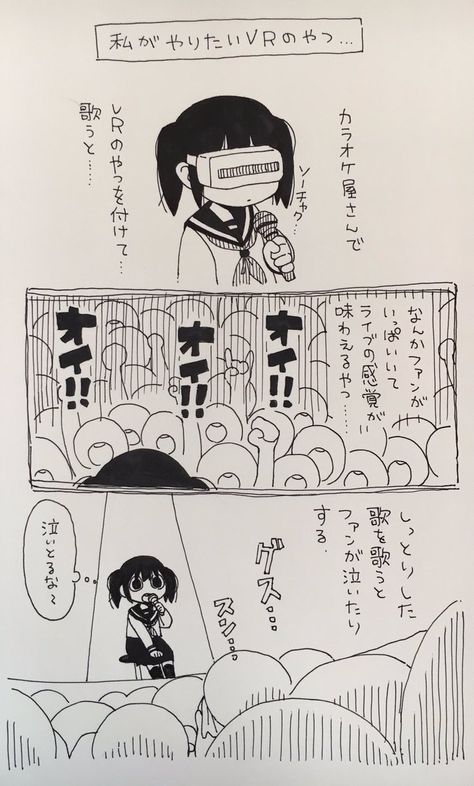 私がやりたいVRのやつ…
カラオケ屋さんで
ソーチャク…
VRのやつを付けて…
歌うと……
なんかファンが
いっぱいいて
ライブの感覚が
味わえるやつ……
オイ!!
オイ!!
オイ!!
しっとりした
歌を歌うと
ファンが泣いたり
する.
グス…
スン…
泣いとるな〜